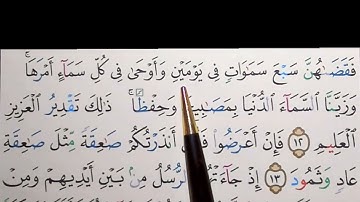 فَقَضَىٰهُنَّ سَبْعَ سَمَٰوَاتٍ فِى يَوْمَيْنِ وَأَوْحَىٰ فِى كُلِّ سَمَآءٍ أَمْرَهَا ۚ
وَزَيَّنَّا ٱلسَّمَآءَ ٱلدُّنْيَا بِمَصَٰبِيحَ وَحِفْظًا ۚ ذَٰلِكَ تَقْدِيرُ ٱلْعَزِيزِ
ٱلْعَلِيمِ ١٢ فَإِنْ أَعْرَضُوا۟ أَنذَرْتُكُمْ صَٰعِقَةً مِّثْلَ صَٰعِقَةِ
عَادٍ وَثَمُودَ ١٣ إِذْ جَآءَتْهُمُ ٱلرُّسُلُ مِنۢ بَيْنِ أَيْدِيهِمْ وَمِنْ